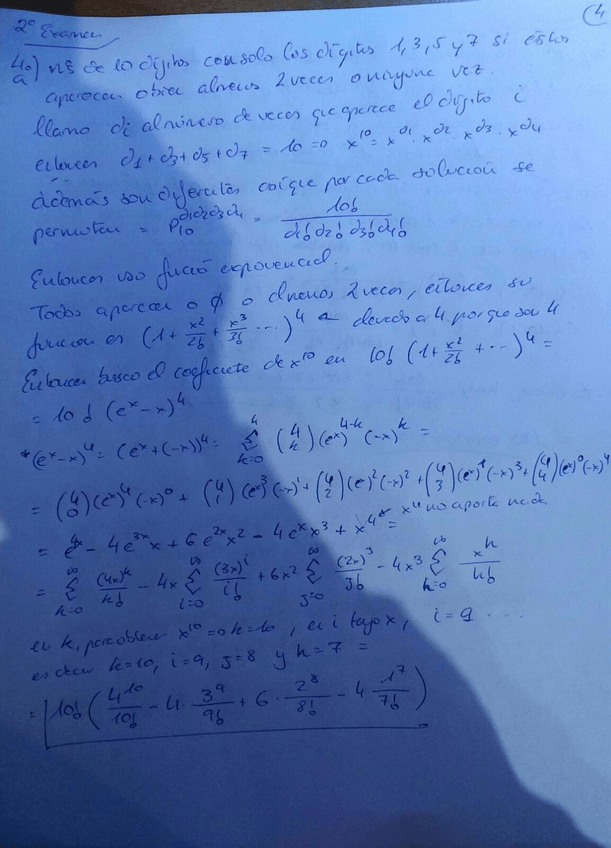 2º Examen
4
4º) nºs de 10 dígitos con solo los dígitos 1, 3, 5 y 7 si estos
a) aparecen o bien al menos 2 veces o ninguna vez.
llamo di al número de veces que aparece el dígito i
entonces d1 + d3 + d5 + d7 = 10 => x^10 = x^d1 · x^d2 · x^d3 · x^d4
además son diferentes así que por cada solución se
permutan = P_10^{d1 d2 d3 d4} = 10! / (d1! d2! d3! d4!)
Entonces uso exponencial.
Todos aparecen o 0 o al menos 2 veces, entonces su
función es (1 + x^2/2! + x^3/3! ...)^4 ← elevado a 4 porque son 4
Entonces busco el coeficiente de x^10 en 10! (1 + x^2/2! + ...)^4 =
= 10! (e^x - x)^4
*(e^x - x)^4 = (e^x + (-x))^4 = Σ_{k=0}^{4} (4 k) (e^x)^{4-k} (-x)^k =
= (4 0)(e^x)^4(-x)^0 + (4 1)(e^x)^3(-x)^1 + (4 2)(e^x)^2(-x)^2 + (4 3)(e^x)^1(-x)^3 + (4 4)(e^x)^0(-x)^4
= e^{4x} - 4e^{3x} x + 6e^{2x} x^2 - 4e^x x^3 + x^4 = x^4 no aporta nada
= Σ_{k=0}^{∞} (4x)^k/k! - 4x Σ_{i=0}^{∞} (3x)^i/i! + 6x^2 Σ_{j=0}^{∞} (2x)^j/j! - 4x^3 Σ_{h=0}^{∞} x^h/h!
en k, para obtener x^10 => k=10, en i tengo x, i=9 ...
es decir k=10, i=9, j=8 y h=7 =
= 10! (4^10/10! - 4 · 3^9/9! + 6 · 2^8/8! - 4 1^7/7!)